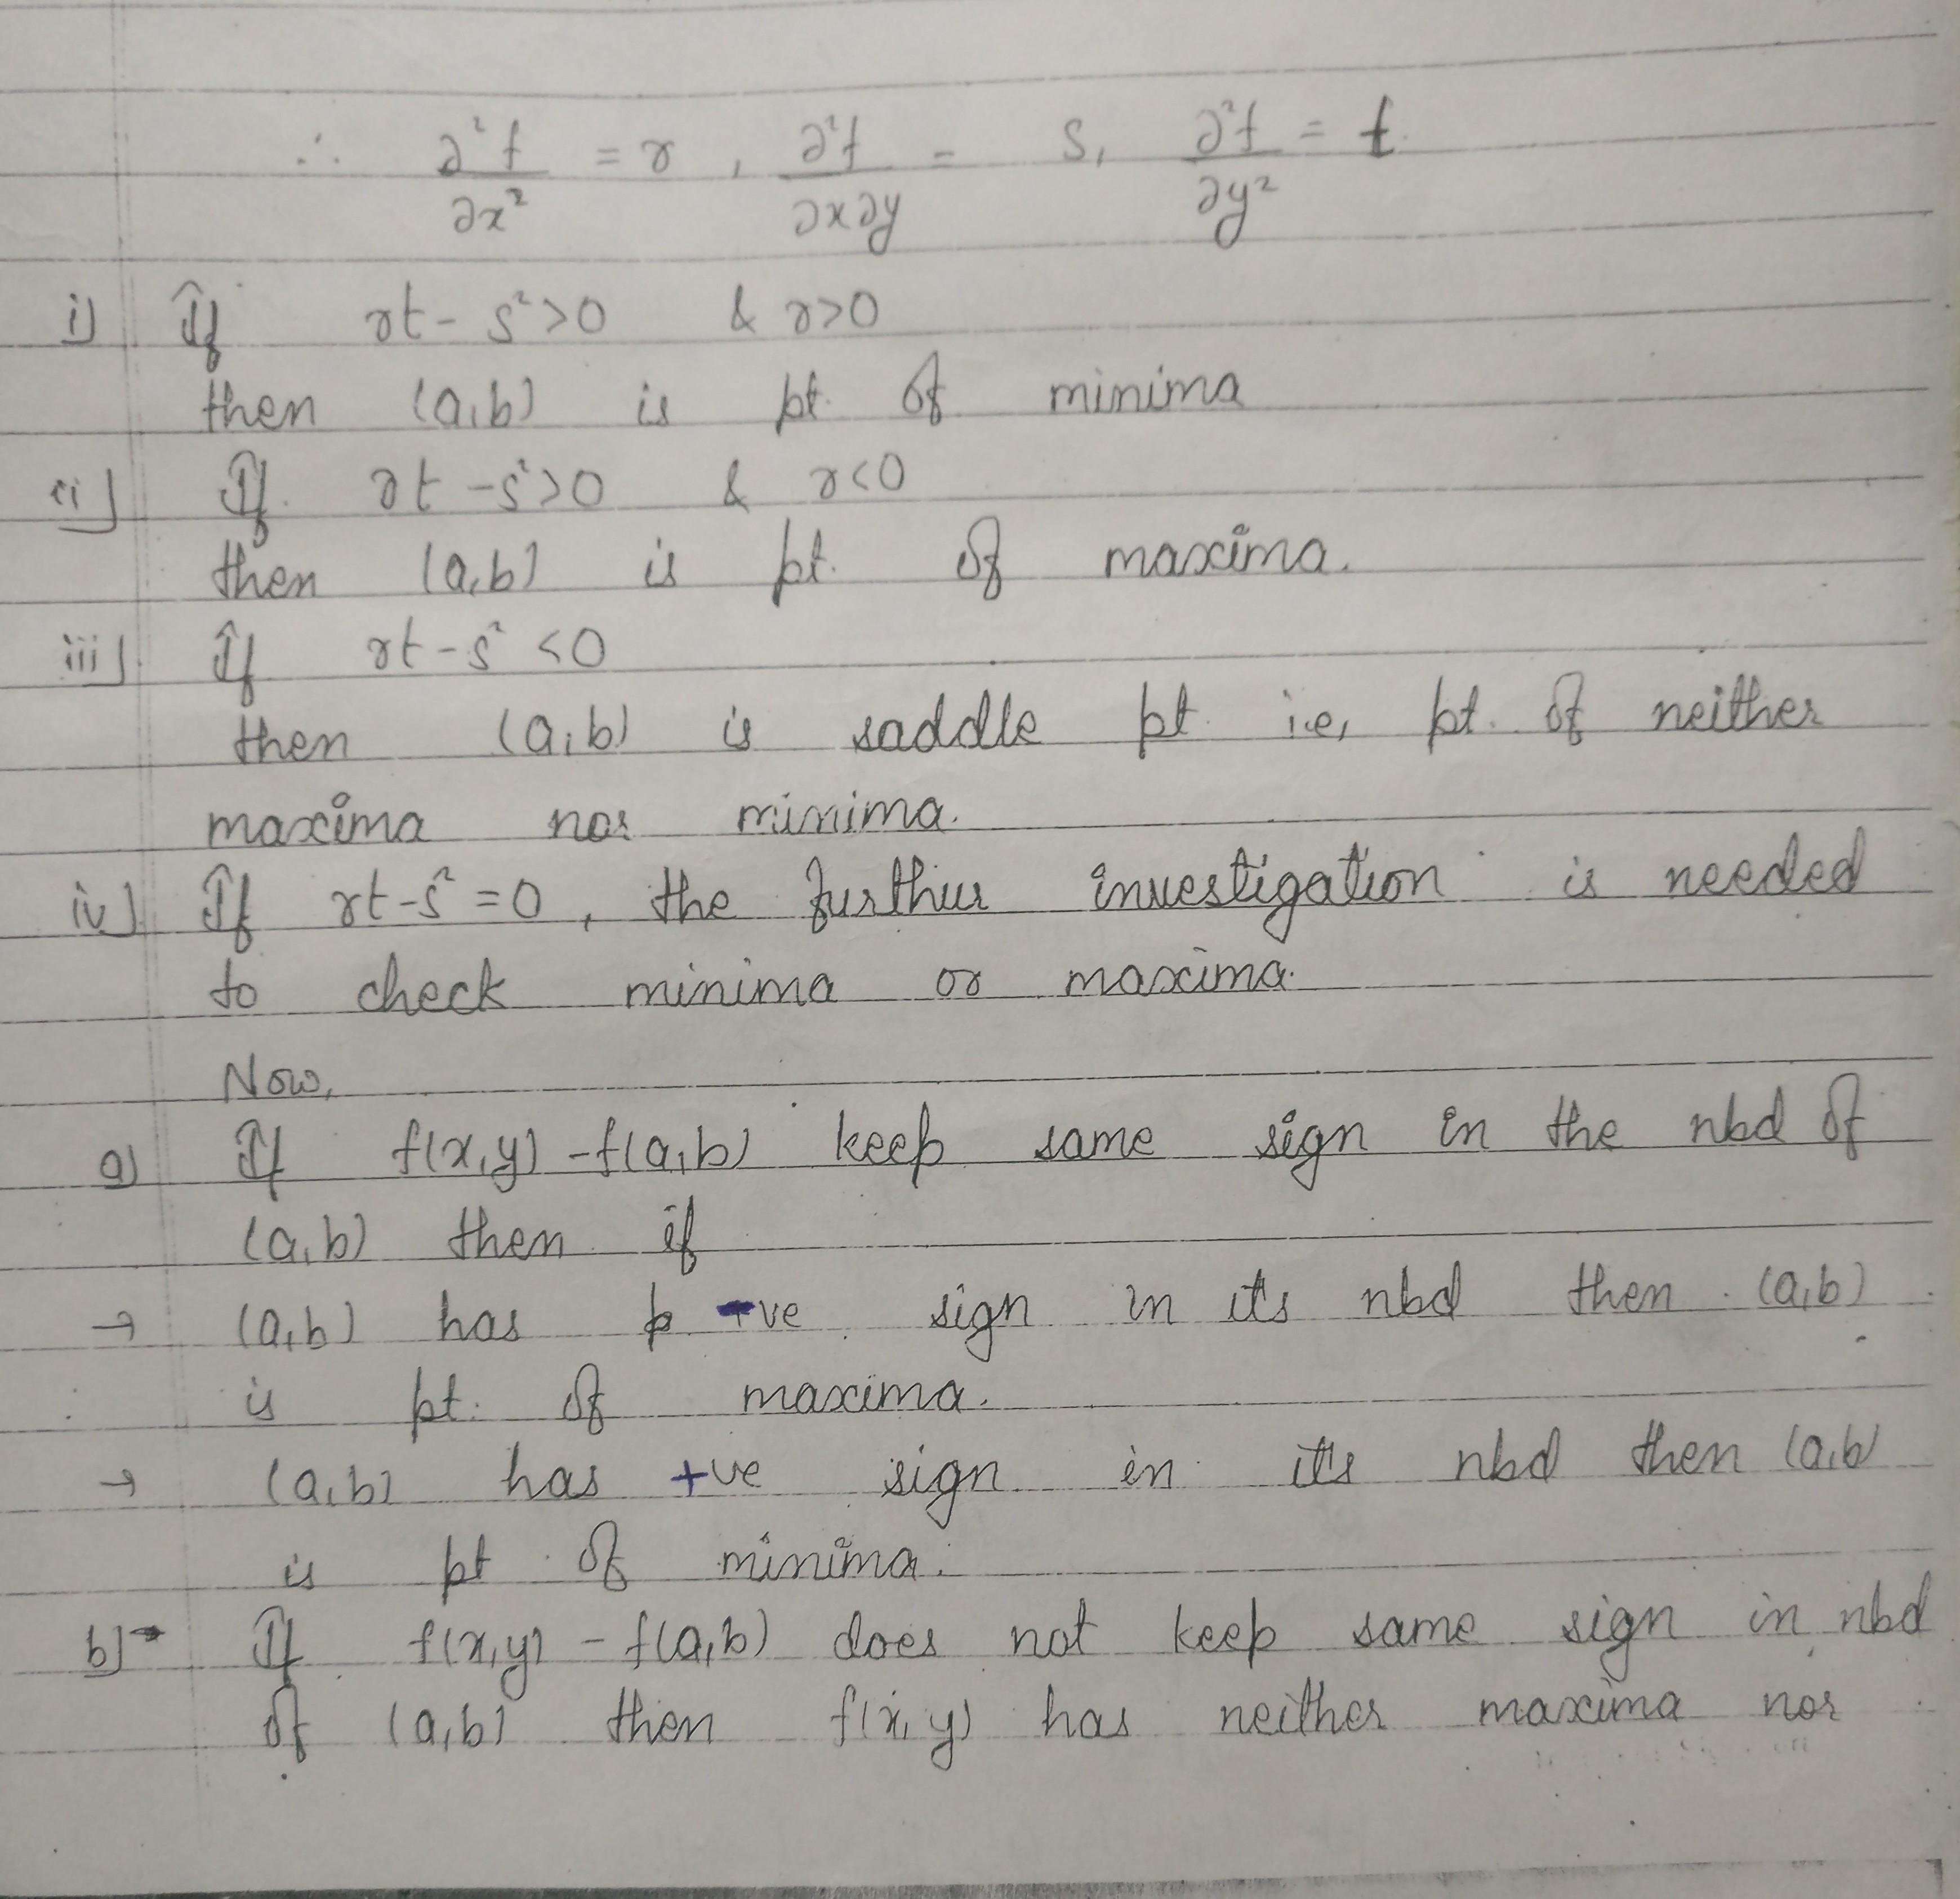 ∴ ∂²f/∂x² = r, ∂²f/∂x∂y = s, ∂²f/∂y² = t
i) If rt - s² > 0 & r > 0
then (a,b) is pt. of minima
ii) If rt - s² > 0 & r < 0
then (a,b) is pt. of maxima.
iii) If rt - s² < 0
then (a,b) is saddle pt. i.e, pt. of neither
maxima nor minima.
iv) If rt - s² = 0, the further investigation is needed
to check minima or maxima.
Now,
a) If f(x,y) - f(a,b) keep same sign in the nbd of
(a,b) then if
→ (a,b) has -ve sign in it's nbd then (a,b)
is pt. of maxima.
→ (a,b) has +ve sign in it's nbd then (a,b)
is pt of minima.
b) → If f(x,y) - f(a,b) does not keep same sign in nbd
of (a,b) then f(x,y) has neither maxima nor